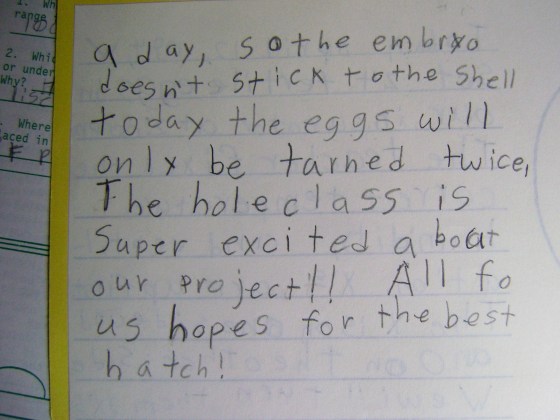 1. Wh
range
2. Whic
or under
Why?
Where
aced in
F P
a day, so the embrxo
doesn't stick to the shell
today the eggs will
only be tarned twice,
The hole class is
Super excited a boat
our project!! All fo
us hopes for the best
hatch!